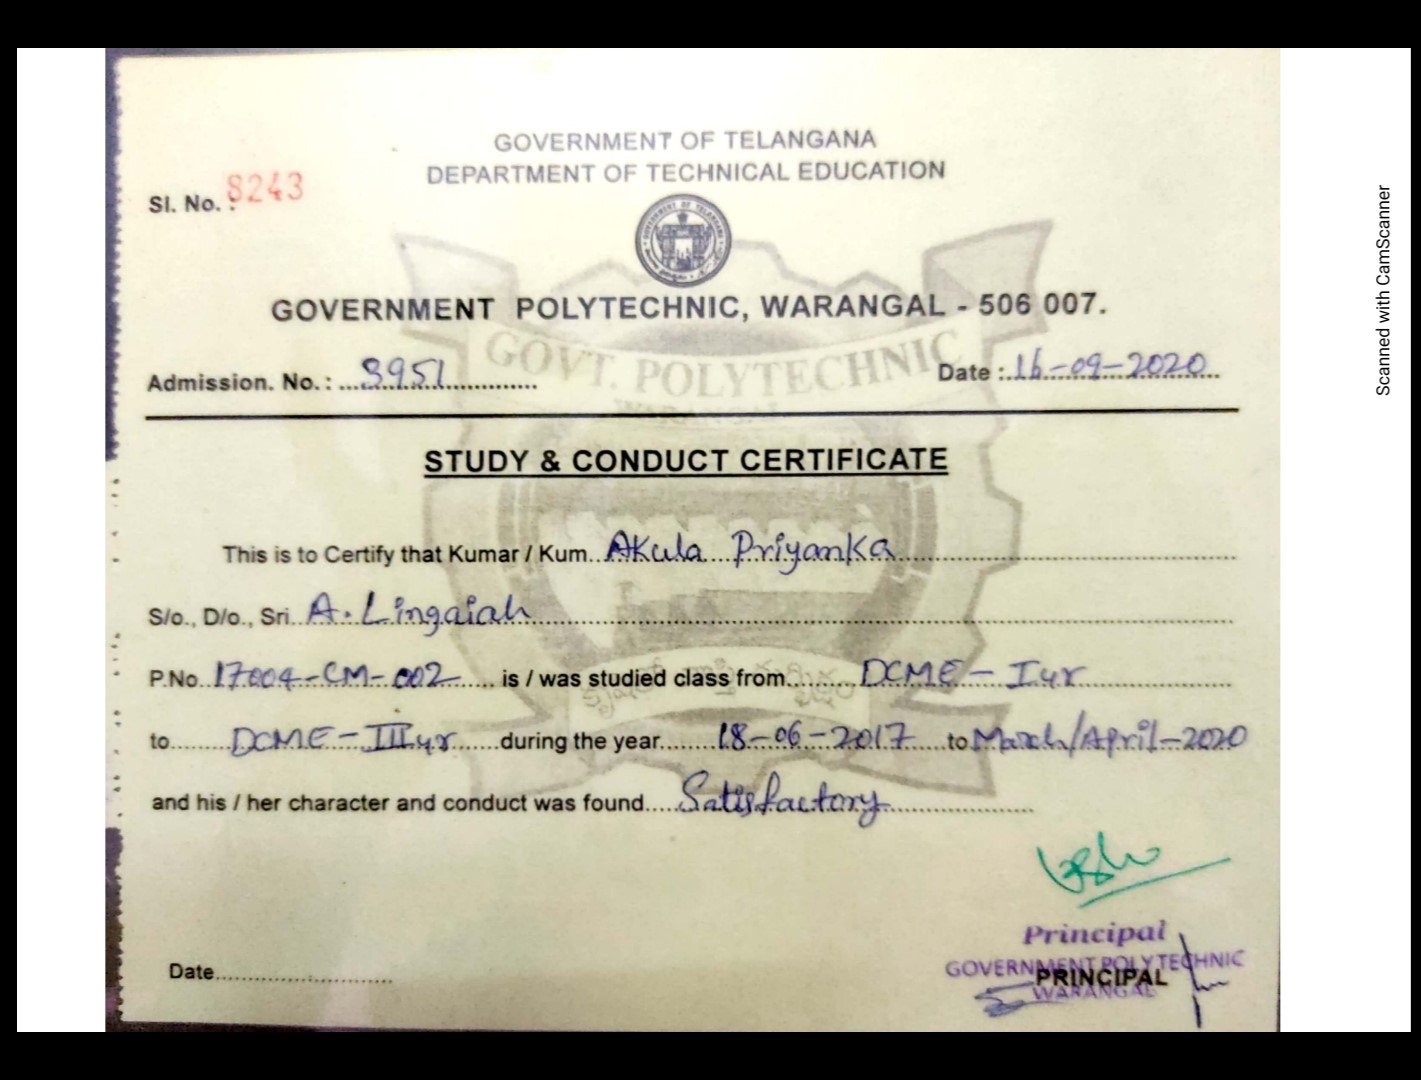 GOVERNMENT OF TELANGANA
DEPARTMENT OF TECHNICAL EDUCATION
Sl. No. : 8243
GOVERNMENT POLYTECHNIC, WARANGAL - 506 007.
GOVT. POLYTECHNIC
WARANGAL
Admission. No. : 3951 Date : 16-09-2020
STUDY & CONDUCT CERTIFICATE
This is to Certify that Kumar / Kum. Akula Priyanka
S/o., D/o., Sri. A. Lingaiah
P.No. 17004-CM-002 is / was studied class from DCME - I yr
to DCME - III yr during the year 18-06-2017 to March/April-2020
and his / her character and conduct was found Satisfactory
Principal
GOVERNMENT POLYTECHNIC
PRINCIPAL
WARANGAL
Date
Scanned with CamScanner